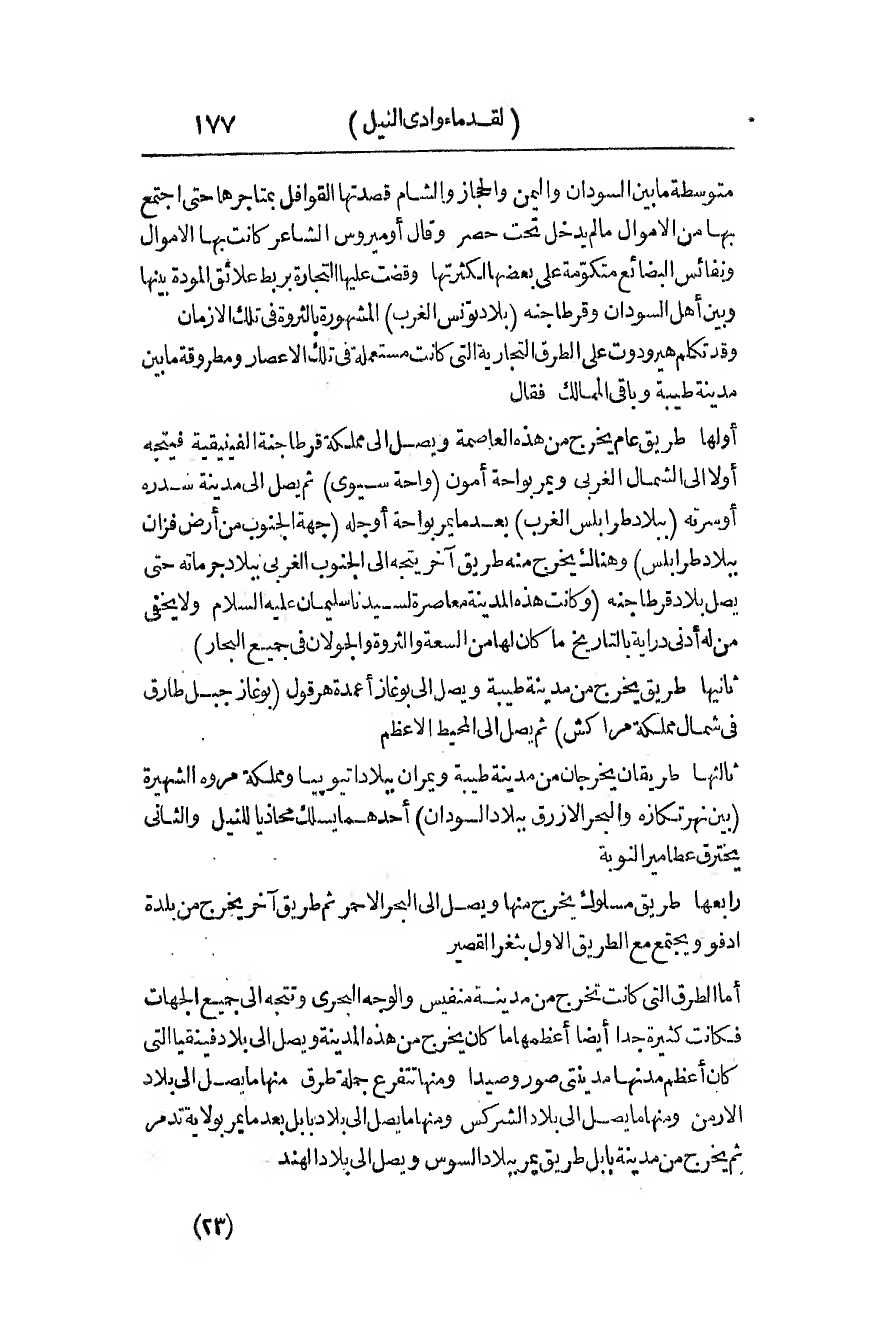 (لقدماء وادى النيل) ١٧٧
متوسطة ما بين السودان واليمن والحجاز والشام قصدتها القوافل بمتاجرها حتى اجتمع
بها من الاموال مالم يدخل تحت حصر وقال أوميروس الشاعر كانت بها الاموال
ونفائس البضائع متكوّمة على بعضها لكثرتها وقضت عليها التجارة بربط علائق المودة بينها
وبين أهل السودان وقرطاجنه (بلاد تونس الغرب) المشهورة بالثروة فى تلك الازمان
وقد تكلم هيرودوت على الطرق التجارية التى كانت مستعملة فى تلك الاعصار ومطروقة ما بين
مدينة طيبة وباقى الممالك فقال
أولها طريق عام يخرج من هذه العاصمة ويصل الى مملكة قرطاجنة الفينيقية فيتجه
أولا الى الشمال الغربى ويمر بواحة أمون (واحة سيوى) ثم يصل الى مدينة سدره
أوسرته (ببلاد طرابلس الغرب) بعد ما يمر بواحة أوجله (جهة الجنوب من أرض فزان
ببلاد طرابلس) وهناك يخرج منه طريق آخر يتجه الى الجنوب الغربى ببلاد جرمانه حتى
يصل بلاد قرطاجنه (وكانت هذه المدينة معاصرة لسيدنا سليمان عليه السلام ولا يخفى
من له أدنى دراية بالتاريخ ما كان لها من السعة والثروة والجولان فى جميع البحار)
ثانيها طريق يخرج من مدينة طيبة ويصل الى بوغاز أعمدة هرقول (بوغاز جبل طارق
فى شمال مملكة مراكش) ثم يصل الى المحيط الاعظم
ثالثها طريقان يخرجان من مدينة طيبة ويمران ببلاد اتيوبيا ومملكة مروه الشهيرة
(بين نهر تكازه والبحر الازرق ببلاد السودان) أحدهما يسلك محاذيا للنيل والثانى
يخترق عطامير النوبة
رابعها طريق مسلوك يخرج منها ويصل الى البحر الاحمر ثم طريق آخر يخرج من بلدة
ادفو ويجتمع مع الطريق الاول بثغر القصير
أما الطرق التى كانت تخرج من مدينة منفيس والوجه البحرى وتتجه الى جميع الجهات
فكانت كثيرة جدا أيضا أعظمها ما كان يخرج من هذه المدينة ويصل الى بلاد فينقيا التى
كان أعظم مدنها مدينتى صور وصيدا ومنها تتفرع جملة طرق منها ما يصل الى بلاد
الارمن ومنها ما يصل الى بلاد الشركس ومنها ما يصل الى بلاد بابل بعد ما يمر بولاية تدمر
ثم يخرج من مدينة بابل طريق يمر ببلاد السوس ويصل الى بلاد الهند
(٢٣)